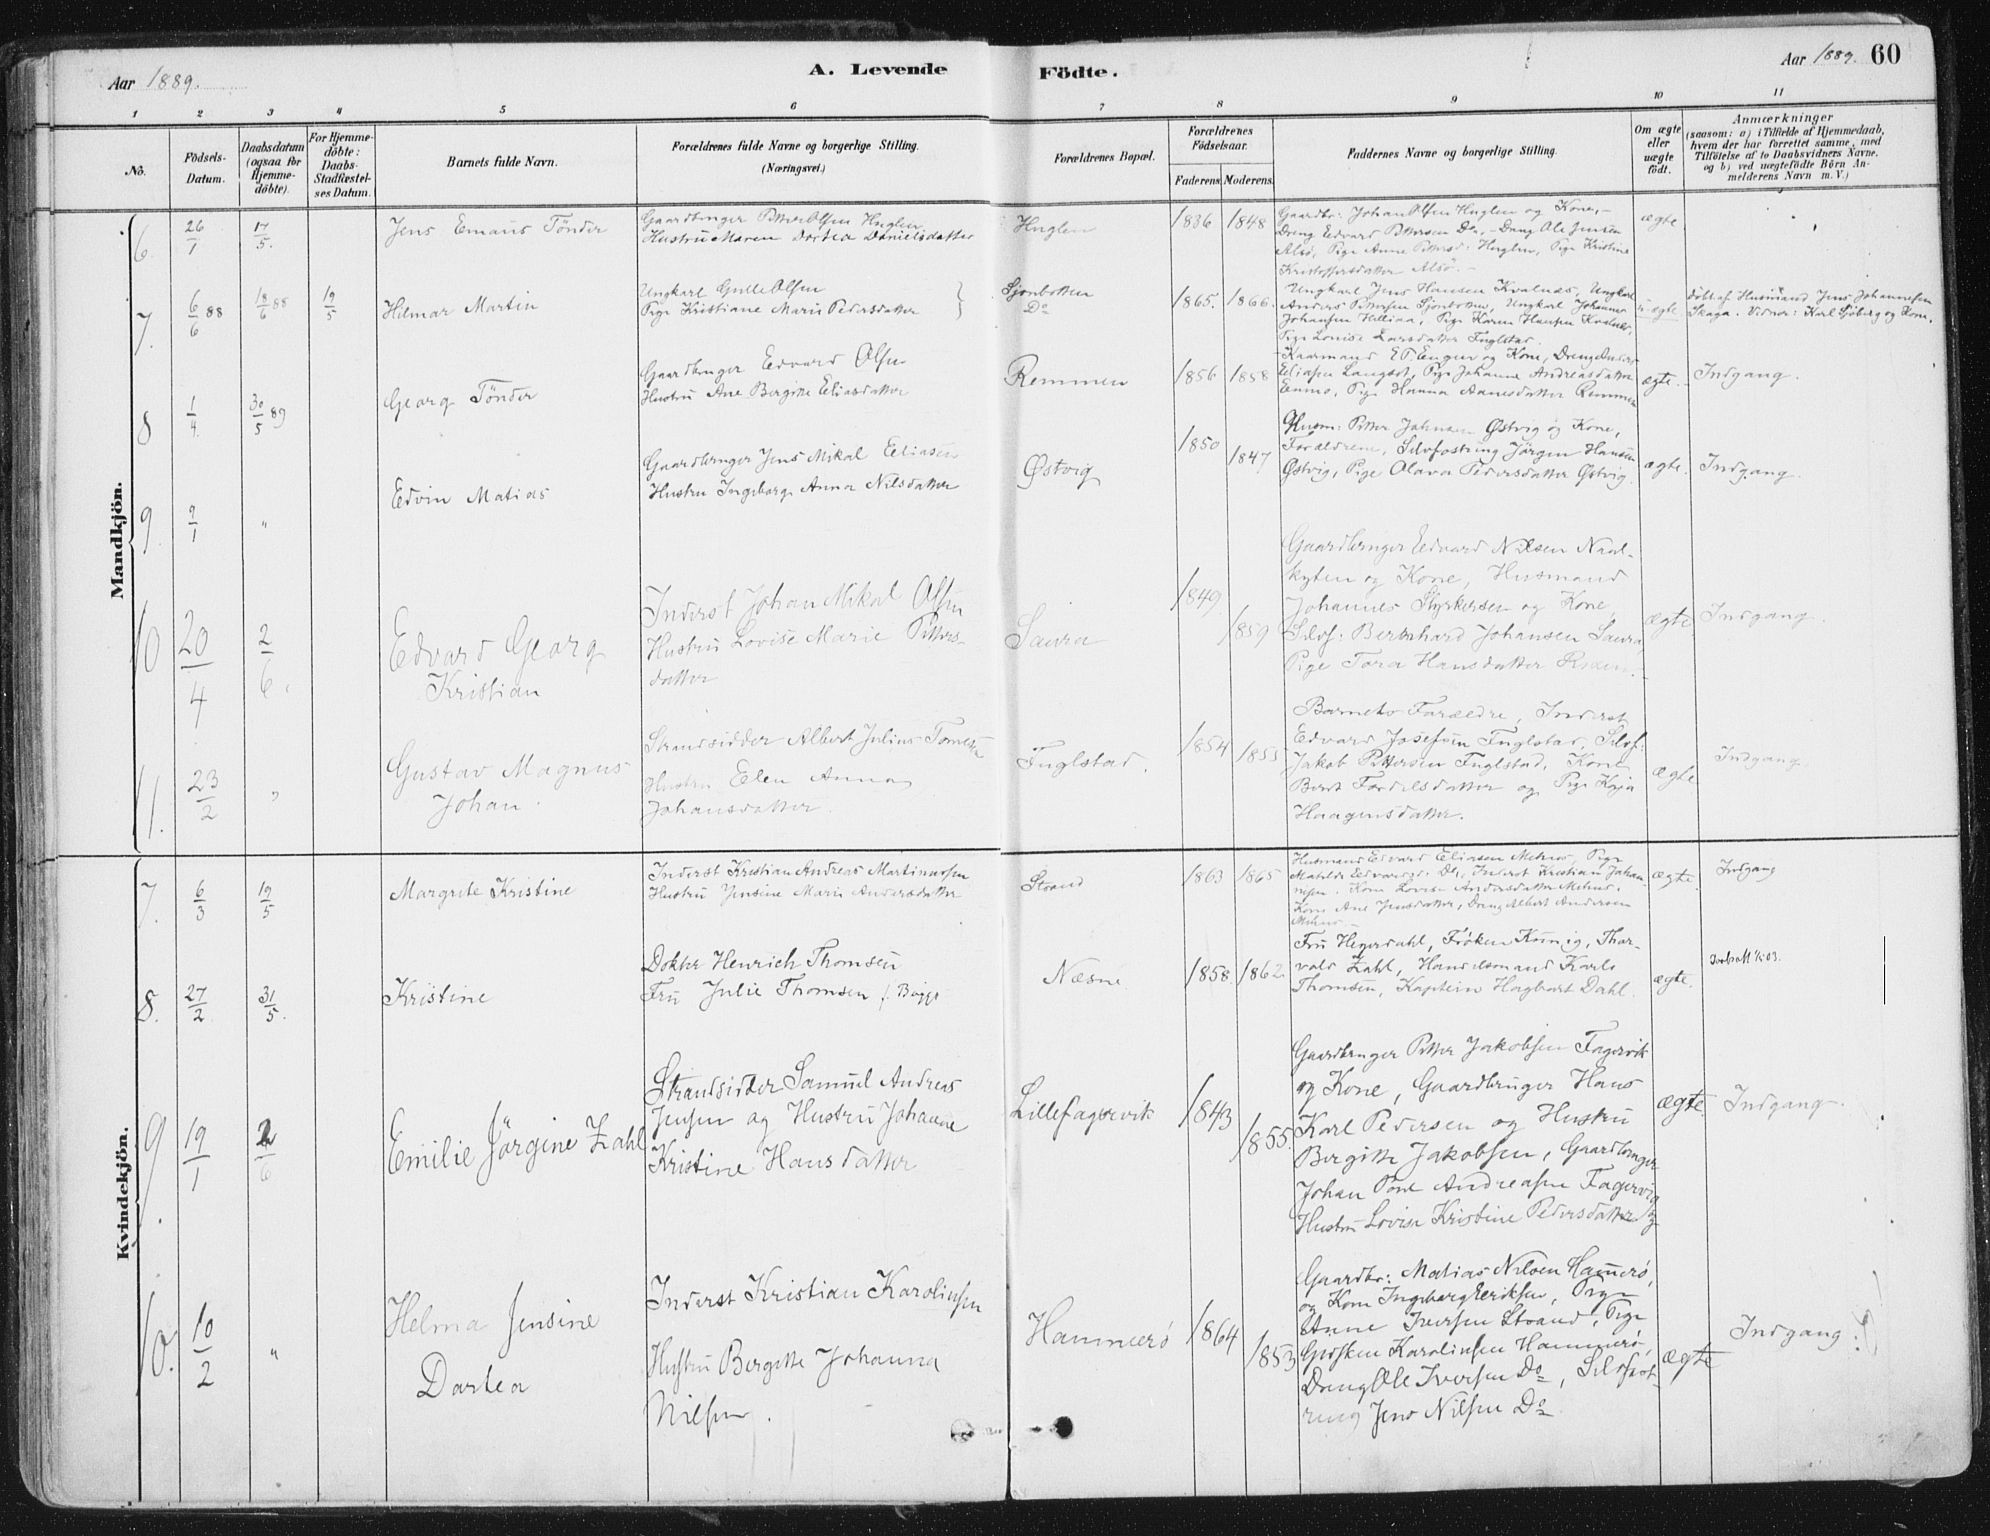 Aar 1889.
A. Levende Födte.
Aar 1889. 60
1 2 3 4 5 6 7 8 9 10 11
No.
Födsels-Datum.
Daabsdatum (ogsaa for Hjemmedöbte).
For Hjemmedöbte: Daabs-Stadfæstelses Datum.
Barnets fulde Navn.
Forældrenes fulde Navne og borgerlige Stilling. (Næringsvei.)
Forældrenes Bopæl.
Forældrenes Födselsaar.
Faderens. Moderens.
Faddernes Navne og borgerlige Stilling.
Om ægte eller uægte födt.
Anmærkninger
(saasom: a) i Tilfælde af Hjemmedaab,
hvem der har forrettet samme, med
Tilföielse af to Daabsvidners Navne,
og b) ved uægtefödte Börn Anmelderens Navn m. V.)
Mandkjön.
6. 26/1 17/5. Jens Emaus Tönder
Gaardbruger Petter Olsen Huglen
Hustru Maren Dortea Danielsdatter
Huglen 1836 1848
Gaardbr: Johan Olsen Huglen og Kone,
Dreng Edvard Pettersen Do, Dreng Ole Jensen
Alsö, Pige Anne Pettersd: Huglen, Pige Kristine
Kristoffersdatter Alsö.
ægte.
7. 6/6 88 18/6 88 19/5 Hilmar Martin
Ungkarl Gulle Olsen
Pige Kristiane Marie Pedersdatter
Sjonbotten
Do
1865. 1866.
Ungkarl Jens Hansen Kvalnæs, Ungkarl
Anders Pettersen Sjonbotten, Ungkarl Johannes
Johansen Helliaa, Pige Karen Hansen Kvalnæs,
Pige Louise Larsdatter Fuglstad.
u-ægte
Döbt af Husmand Jens Johannesen
Skaga. Vidner: Karl Sjöberg og Kone.
8 1/4 30/5 89 Georg Tönder
Gaardbruger Edvard Olsen
Hustru Ane Bergitte Eliasdatter
Remmen 1856 1858
og Kone, Dreng Anders
Eliasen Langset, Pige Johanna Andreasdatter
Pige Hanna Remmen
ægte. Indgang.
9 9/1 " Edvin Matias
Gaardbruger Jens Mikal Eliasen
Hustru Ingeborg Anna Nilsdatter
Østvig 1850 1847
Husm: Petter Johnsen Østvig og Kone,
Forældrene, Selvfostring Jörgen Hansen
Østvig, Pige Olava Pedersdatter Østvig.
ægte. Indgang.
10 20/4 2/6. Edvard Georg
Kristian
Inderst Johan Mikal Olsen
Hustru Lovise Marie Petters-
datter
Saura 1849. 1859
Gaardbruger Edvard Nilsen Naal-
kyten og Kone, Husmand
Johannes Styrkersen og Kone,
Selvf: Bernhard Johansen Saura,
Pige Tora Hansdatter
ægte Indgang.
11. 23/2 " Gustav Magnus
Johan.
Strandsidder Albert Julius
Hustru Elen Anna
Johansdatter.
Fuglstad. 1854 1855
Barnets Forældre, Inderst
Edvard Josefsen Fuglstad, Selvf:
Jakob Pettersen Fuglstad, Kone
Berit og Pige Kaja
Haagensdatter.
ægte Indgang.
Kvindekjön.
7. 6/3 19/5 Margrete Kristine
Inderst Kristian Andreas Martinussen
Hustru Jensine Marie Andersdatter
Strand 1863 1865
Husmand Edvard Eliasen Pige
Matilde Edvardsd. Do, Inderst Kristian Johan-
nesen. Kone Lovise Andersdatter
Kone Ane Jensdatter, Dreng Albert Andersen
ægte. Indgang
8. 27/2 31/5. Kristine
Doktor Henrich Thomsen
Fru Julie Thomsen f. Bugge
Næsne 1858. 1862.
Fru Heyerdahl, Fröken Thor-
vald Zahl, Handelsmand Karl
Thomsen, Kaptein Hagbart Dahl.
ægte.
9. 19/1 2/6 Emilie Jörgine Zahl
Strandsidder Samuel Andreas
Jensen og Hustru Johanne
Kristine Hansdatter
Lillefagervik 1843 1855.
Gaardbruger Petter Jakobsen Fagervik
og Kone, Gaardbruger Hans
Karl Pedersen og Hustru
Bergitte Jakobsen, Gaardbruger
Johan Andreasen Fagervig og
Hustru Lovise Kristine Pedersdatter
ægte Indgang.
10. 10/2 " Helma Jensine
Dortea
Inderst Kristian Karolinsen
Hustru Bergitte Johanna
Nilsen.
Hammerö 1864 1853
Gaardbr: Matias Nilsen Hammerö,
og Kone Ingeborg Eriksen, Pige
Anne Iversen Strand, Pige
Karolinsen Hammerö,
Dreng Ole Iversen Do, Selvfost-
ring Jens Nilsen Do
ægte Indgang.